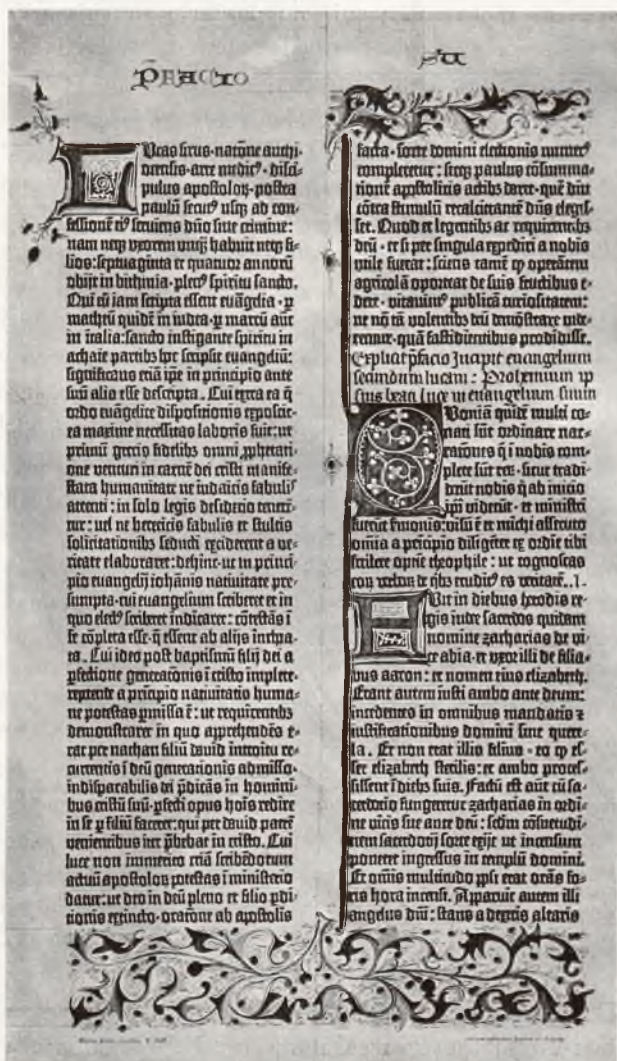 PRACIO
SU
Lucas sirus·natōne anthi-
ocensis·arte medic⁹·disci-
pulus apostoloꝝ·postea
paulū secut⁹ usqꝫ ad con-
fessionē ei⁹ serviens dn̄o sine crimine:
nam neqꝫ uxorem unqꝫ habuit neqꝫ fi-
lios: septuaginta et quatuor annorū
obijt in bithinia·plen⁹ spiritu sancto.
Qui cū jam scripta essent evāgelia·ꝑ
matheū quidē in iudea·ꝑ marcū aūt
in italia: sancto instigante spiritu in
achaie partibꝫ hoc scripsit evangeliū:
significans eciā ip̄e in principio ante
suū alia esse descripta. Cui extra ea q̄
ordo evāgelice dispositionis exposcit-
ea maxime necessitas laboris fuit: ut
primū grecis fidelibꝫ omni ꝓphetati-
one venturi in carnē dei cristi manife-
stata humanitate ne iudaicis fabulis
attenti: in solo legis desiderio tenerē-
tur: vel ne hereticis fabulis et stultis
solicitationibꝫ seducti exciderent a ve-
ritate elaboraret: dehinc·ut in princi-
pio evangelij iohānis nativitate pre-
sumpta·cui evangelium scriberet et in
quo elect⁹ scriberet indicaret: cōtestās ī
se cōpleta esse·q̄ essent ab alijs incħpa-
ta. Cui ideo post baptismū filij dei a
ꝑfectione generacōnis ī cristo implete-
repetende a principio nativitatis huma-
ne potestas ꝑmissa ē: ut requirentibꝫ
demonstraret in quo apprehendēs e-
rat per nathan filiū david introitu re-
currentis ī deū generacionis admisso·
indisparabilis dei p̄dicās in homini-
bus cristū suū·ꝑfecti opus hoīs redire
in se ꝑ filiū faceret: qui per david patrē
venientibus iter p̄bebat in cristo. Cui
luce non immerito eciā scribēdorum
actuū apostoloꝝ potestas ī ministerio
datur: ut deo in deū pleno et filio ꝓdi-
tionis extincto·oracōne ab apostolis
facta·sorte domini electionis numer⁹
completretur: sicqꝫ paulus cōsumma-
tionē apostolicis actibꝫ daret·quē diu
cōtra stimulū recalcitrantē dn̄s elegis-
set. Quod et legentibꝫ ac requirentibꝫ
deū·et si per singula expediri a nobis
utile fuerat: sciens tamē ꝙ operātem
agricolā oporteat de suis fructibus e-
dere·vitavim⁹ publicā curiositatem:
ne nō tā volentibꝫ deū demōstrare vide-
remur·quā fastidientibus prodidisse.
Explicit p̄facio Incipit evangelium
secundum lucam: Prohemium ip
sius beati luce in evangelium suum
Quoniā quidē multi co-
nati sūt ordinare nar-
rationes q̄ ī nobis com-
plete sūt reꝝ·sicut tradi-
derūt nobis q̄ ab inicio
ip̄i viderūt·et ministri
fuerūt s̄monis: visū ē et michi assecuto
omīa a principio diligēter ex ordīe tibi
scribere optīe theophile: ut cognoscas
eoꝝ verboꝝ de q̄bꝫ erudit⁹ es veritatē..I.
Fuit in diebus herodis re-
gis iudee sacerdos quidam
nomine zacharias de vi-
ce abia·et uxor illi de filia-
bus aaron: et nomen eius elizabeth.
Erant autem iusti ambo ante deum:
incedentes in omnibus mandatis ⁊
iustificationibus domini sine quere-
la. Et non erat illis filius·eo ꝙ es-
set elizabeth sterilis: et ambo proces-
sissent ī diebꝫ suis. Factū est aūt cū sa-
cerdotio fungeretur zacharias in ordi-
ne vicis sue ante deū: scd̄m cōsuetudi-
nem sacerdotij sorte exijt ut incensum
poneret ingressus in templū domini.
Et om̄is multitudo ppl̓i erat orās fo-
ris hora incensi. Apparuit autem illi
angelus dn̄i: stans a dextris altaris